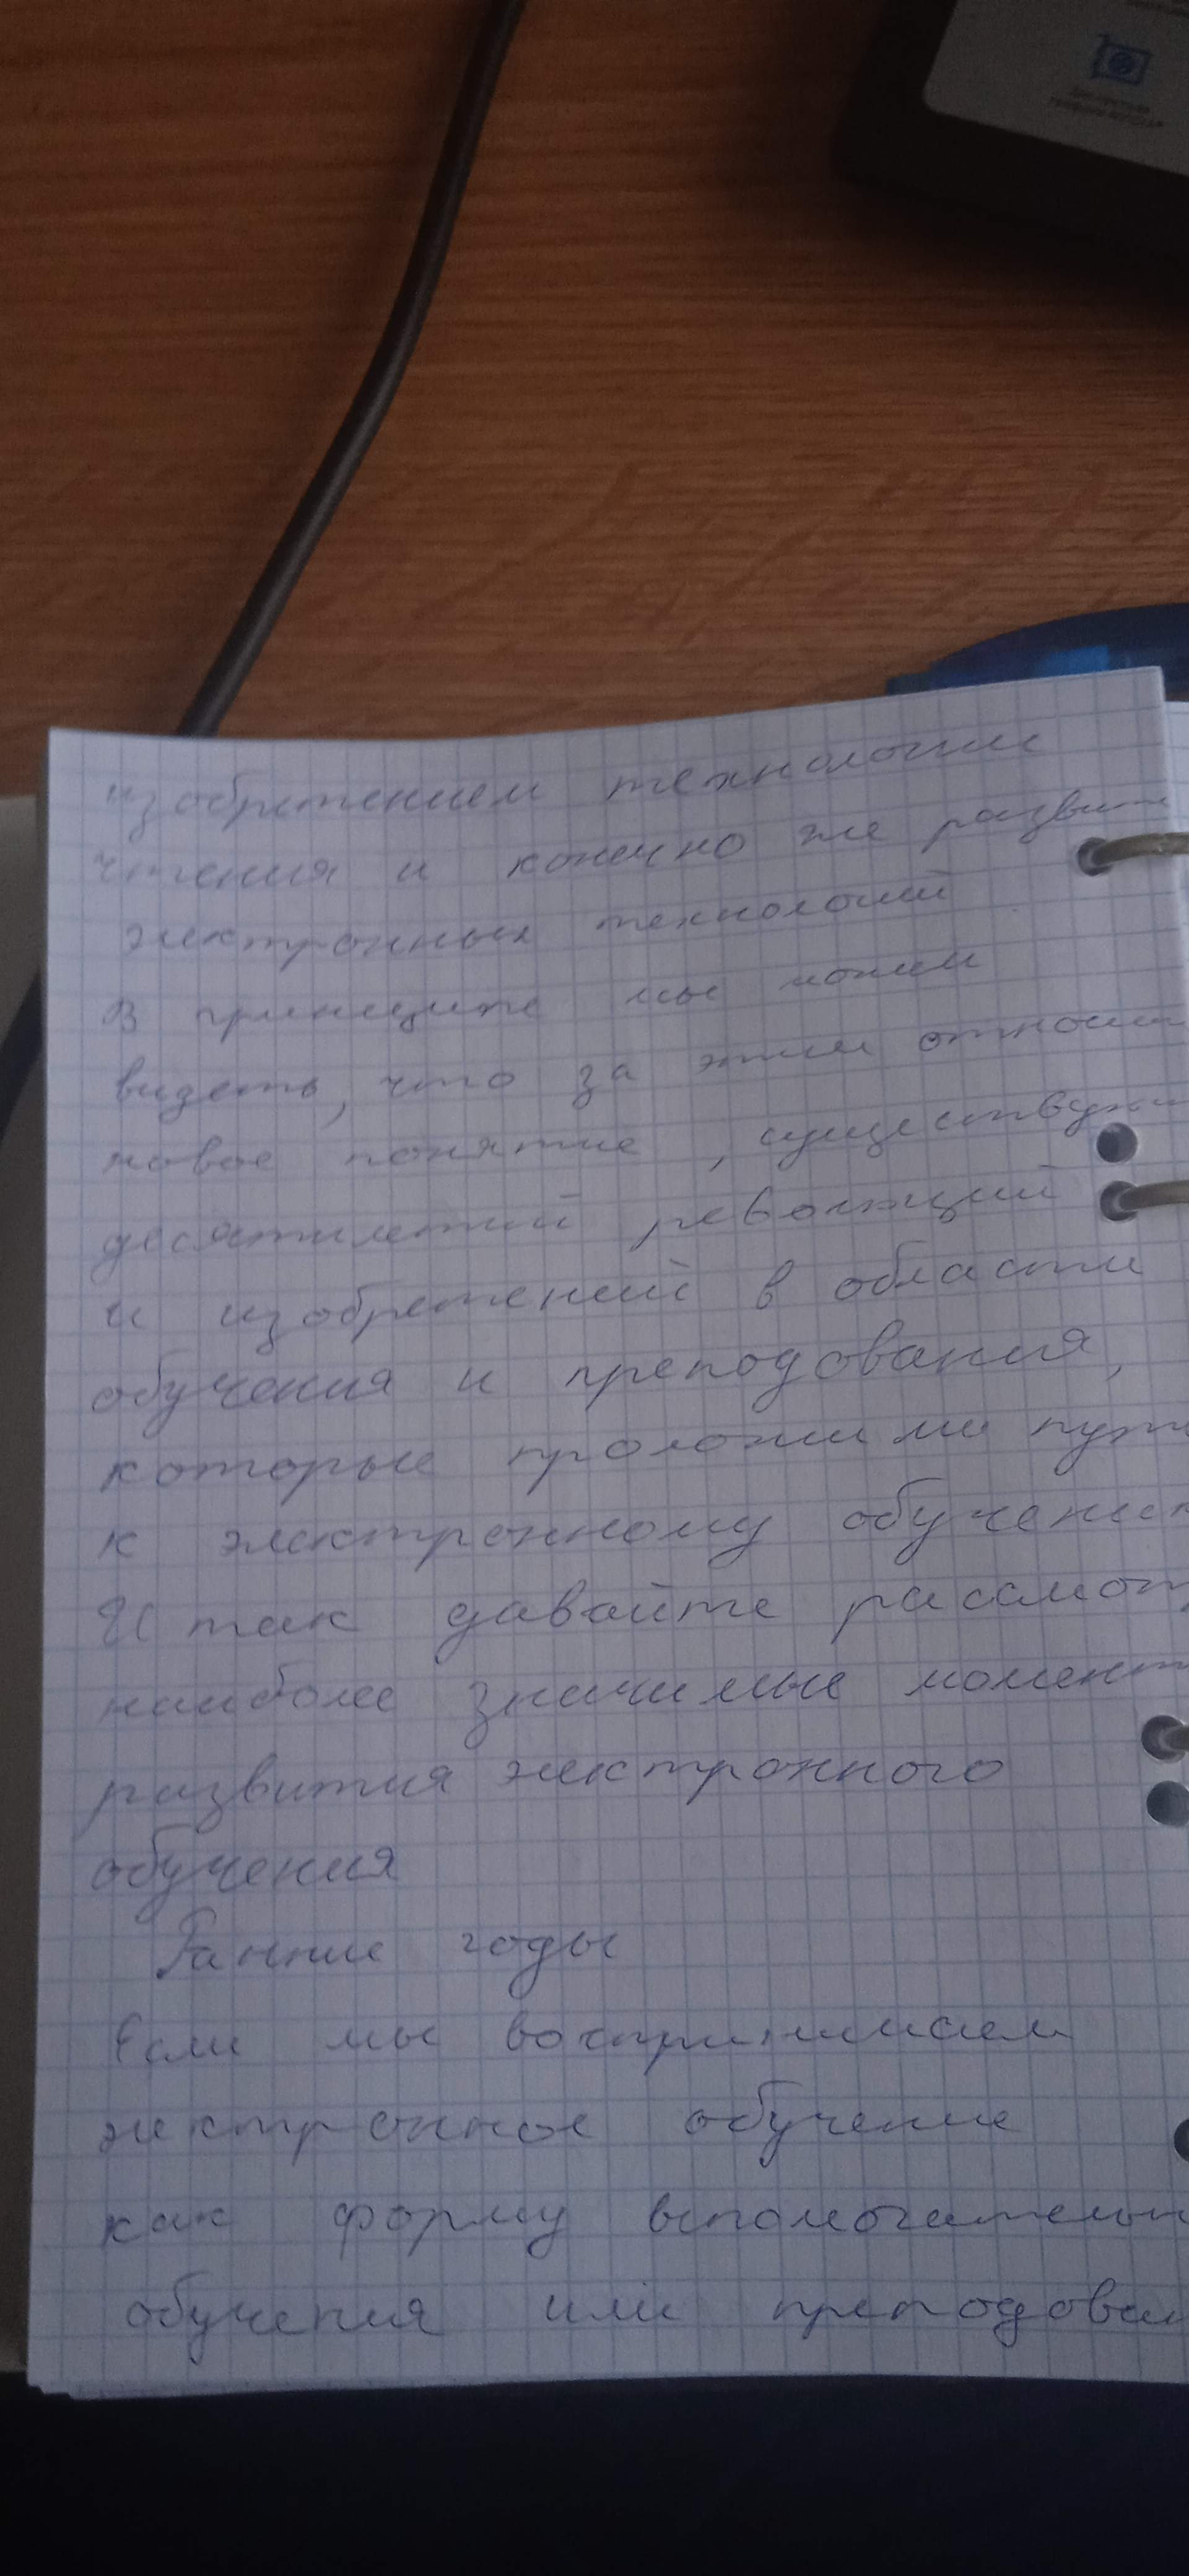 изобретением технологии
чтения и конечно же развит
электронных технологий
В принципе мы можем
видеть, что за этим относи
новое понятие, существуют
десятилетий революций
и изобретений в области
обучения и преподования,
которые проложили путь
к электронному обучению
И так давайте рассмотр
наиболее значимые момент
развития электронного
обучения
Ранние годы
Если мы воспринимаем
электронное обучение
как форму вспомогательн
обучения или преподован